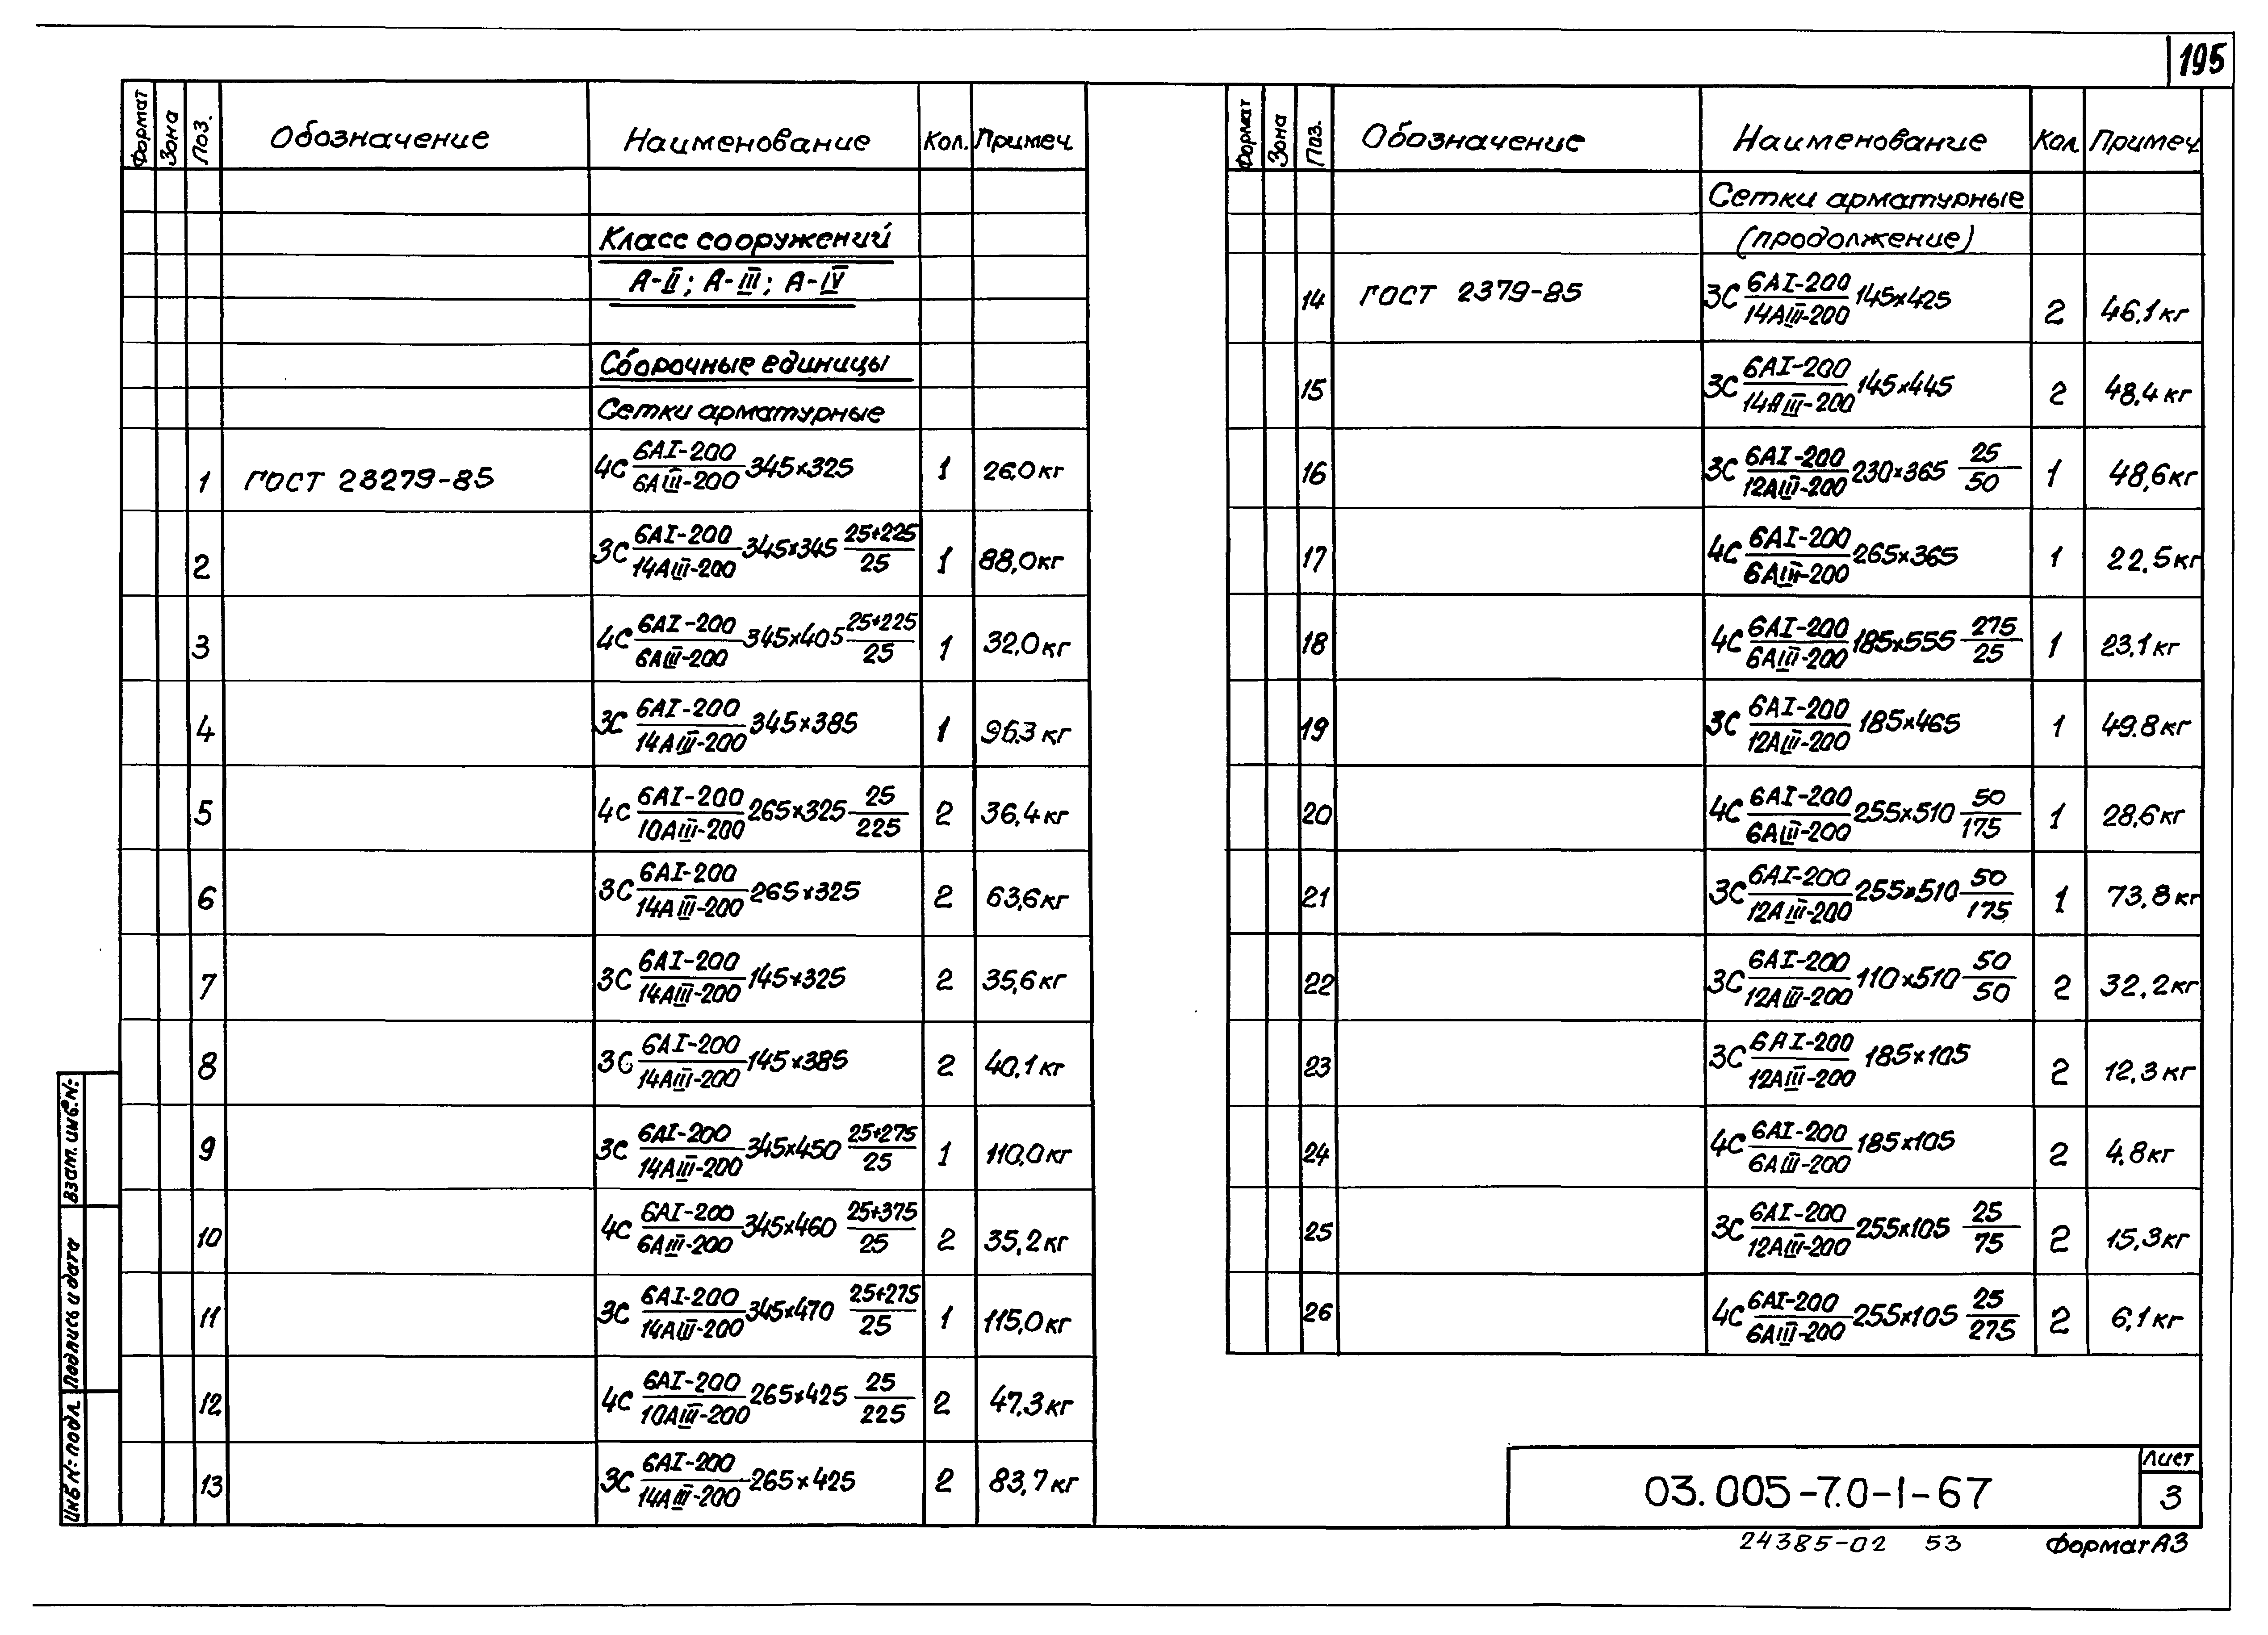 195
Формат Зона Поз. Обозначение Наименование Кол. Примеч
Класс сооружений
А-II; А-III; А-IV
Сборочные единицы
Сетки арматурные
1 ГОСТ 23279-85 4С 6АI-200/6АIII-200 345×325 1 26,0 кг
2 3С 6АI-200/14АIII-200 345×345 25+225/25 1 88,0 кг
3 4С 6АI-200/6АIII-200 345×405 25+225/25 1 32,0 кг
4 3С 6АI-200/14АIII-200 345×385 1 96.3 кг
5 4С 6АI-200/10АIII-200 265×325 25/225 2 36,4 кг
6 3С 6АI-200/14АIII-200 265×325 2 63,6 кг
7 3С 6АI-200/14АIII-200 145×325 2 35,6 кг
8 3С 6АI-200/14АIII-200 145×385 2 40,1 кг
9 3С 6АI-200/14АIII-200 345×450 25+275/25 1 110,0 кг
10 4С 6АI-200/6АIII-200 345×460 25+375/25 2 35,2 кг
11 3С 6АI-200/14АIII-200 345×470 25+275/25 1 115,0 кг
12 4С 6АI-200/10АIII-200 265×425 25/225 2 47,3 кг
13 3С 6АI-200/14АIII-200 265×425 2 83,7 кг
Формат Зона Поз. Обозначение Наименование Кол. Примеч
Сетки арматурные
(продолжение)
14 ГОСТ 2379-85 3С 6АI-200/14АIII-200 145×425 2 46,1 кг
15 3С 6АI-200/14АIII-200 145×445 2 48,4 кг
16 3С 6АI-200/12АIII-200 230×365 25/50 1 48,6 кг
17 4С 6АI-200/6АIII-200 265×365 1 22.5 кг
18 4С 6АI-200/6АIII-200 185×555 275/25 1 23,1 кг
19 3С 6АI-200/12АIII-200 185×465 1 49.8 кг
20 4С 6АI-200/6АIII-200 255×510 50/175 1 28,6 кг
21 3С 6АI-200/12АIII-200 255×510 50/175 1 73,8 кг
22 3С 6АI-200/12АIII-200 110×510 50/50 2 32,2 кг
23 3С 6АI-200/12АIII-200 185×105 2 12,3 кг
24 4С 6АI-200/6АIII-200 185×105 2 4,8 кг
25 3С 6АI-200/12АIII-200 255×105 25/75 2 15,3 кг
26 4С 6АI-200/6АIII-200 255×105 25/275 2 6,1 кг
Взам. инв. №
Подпись и дата
Инв № подл.
03.005-7.0-1-67
Лист
3
24385-02 53 Формат А3